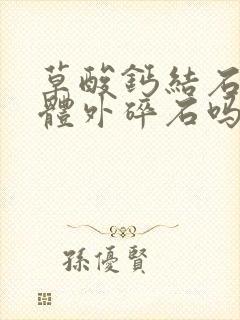 草酸鈣結石
體外碎石嗎
孫優賢